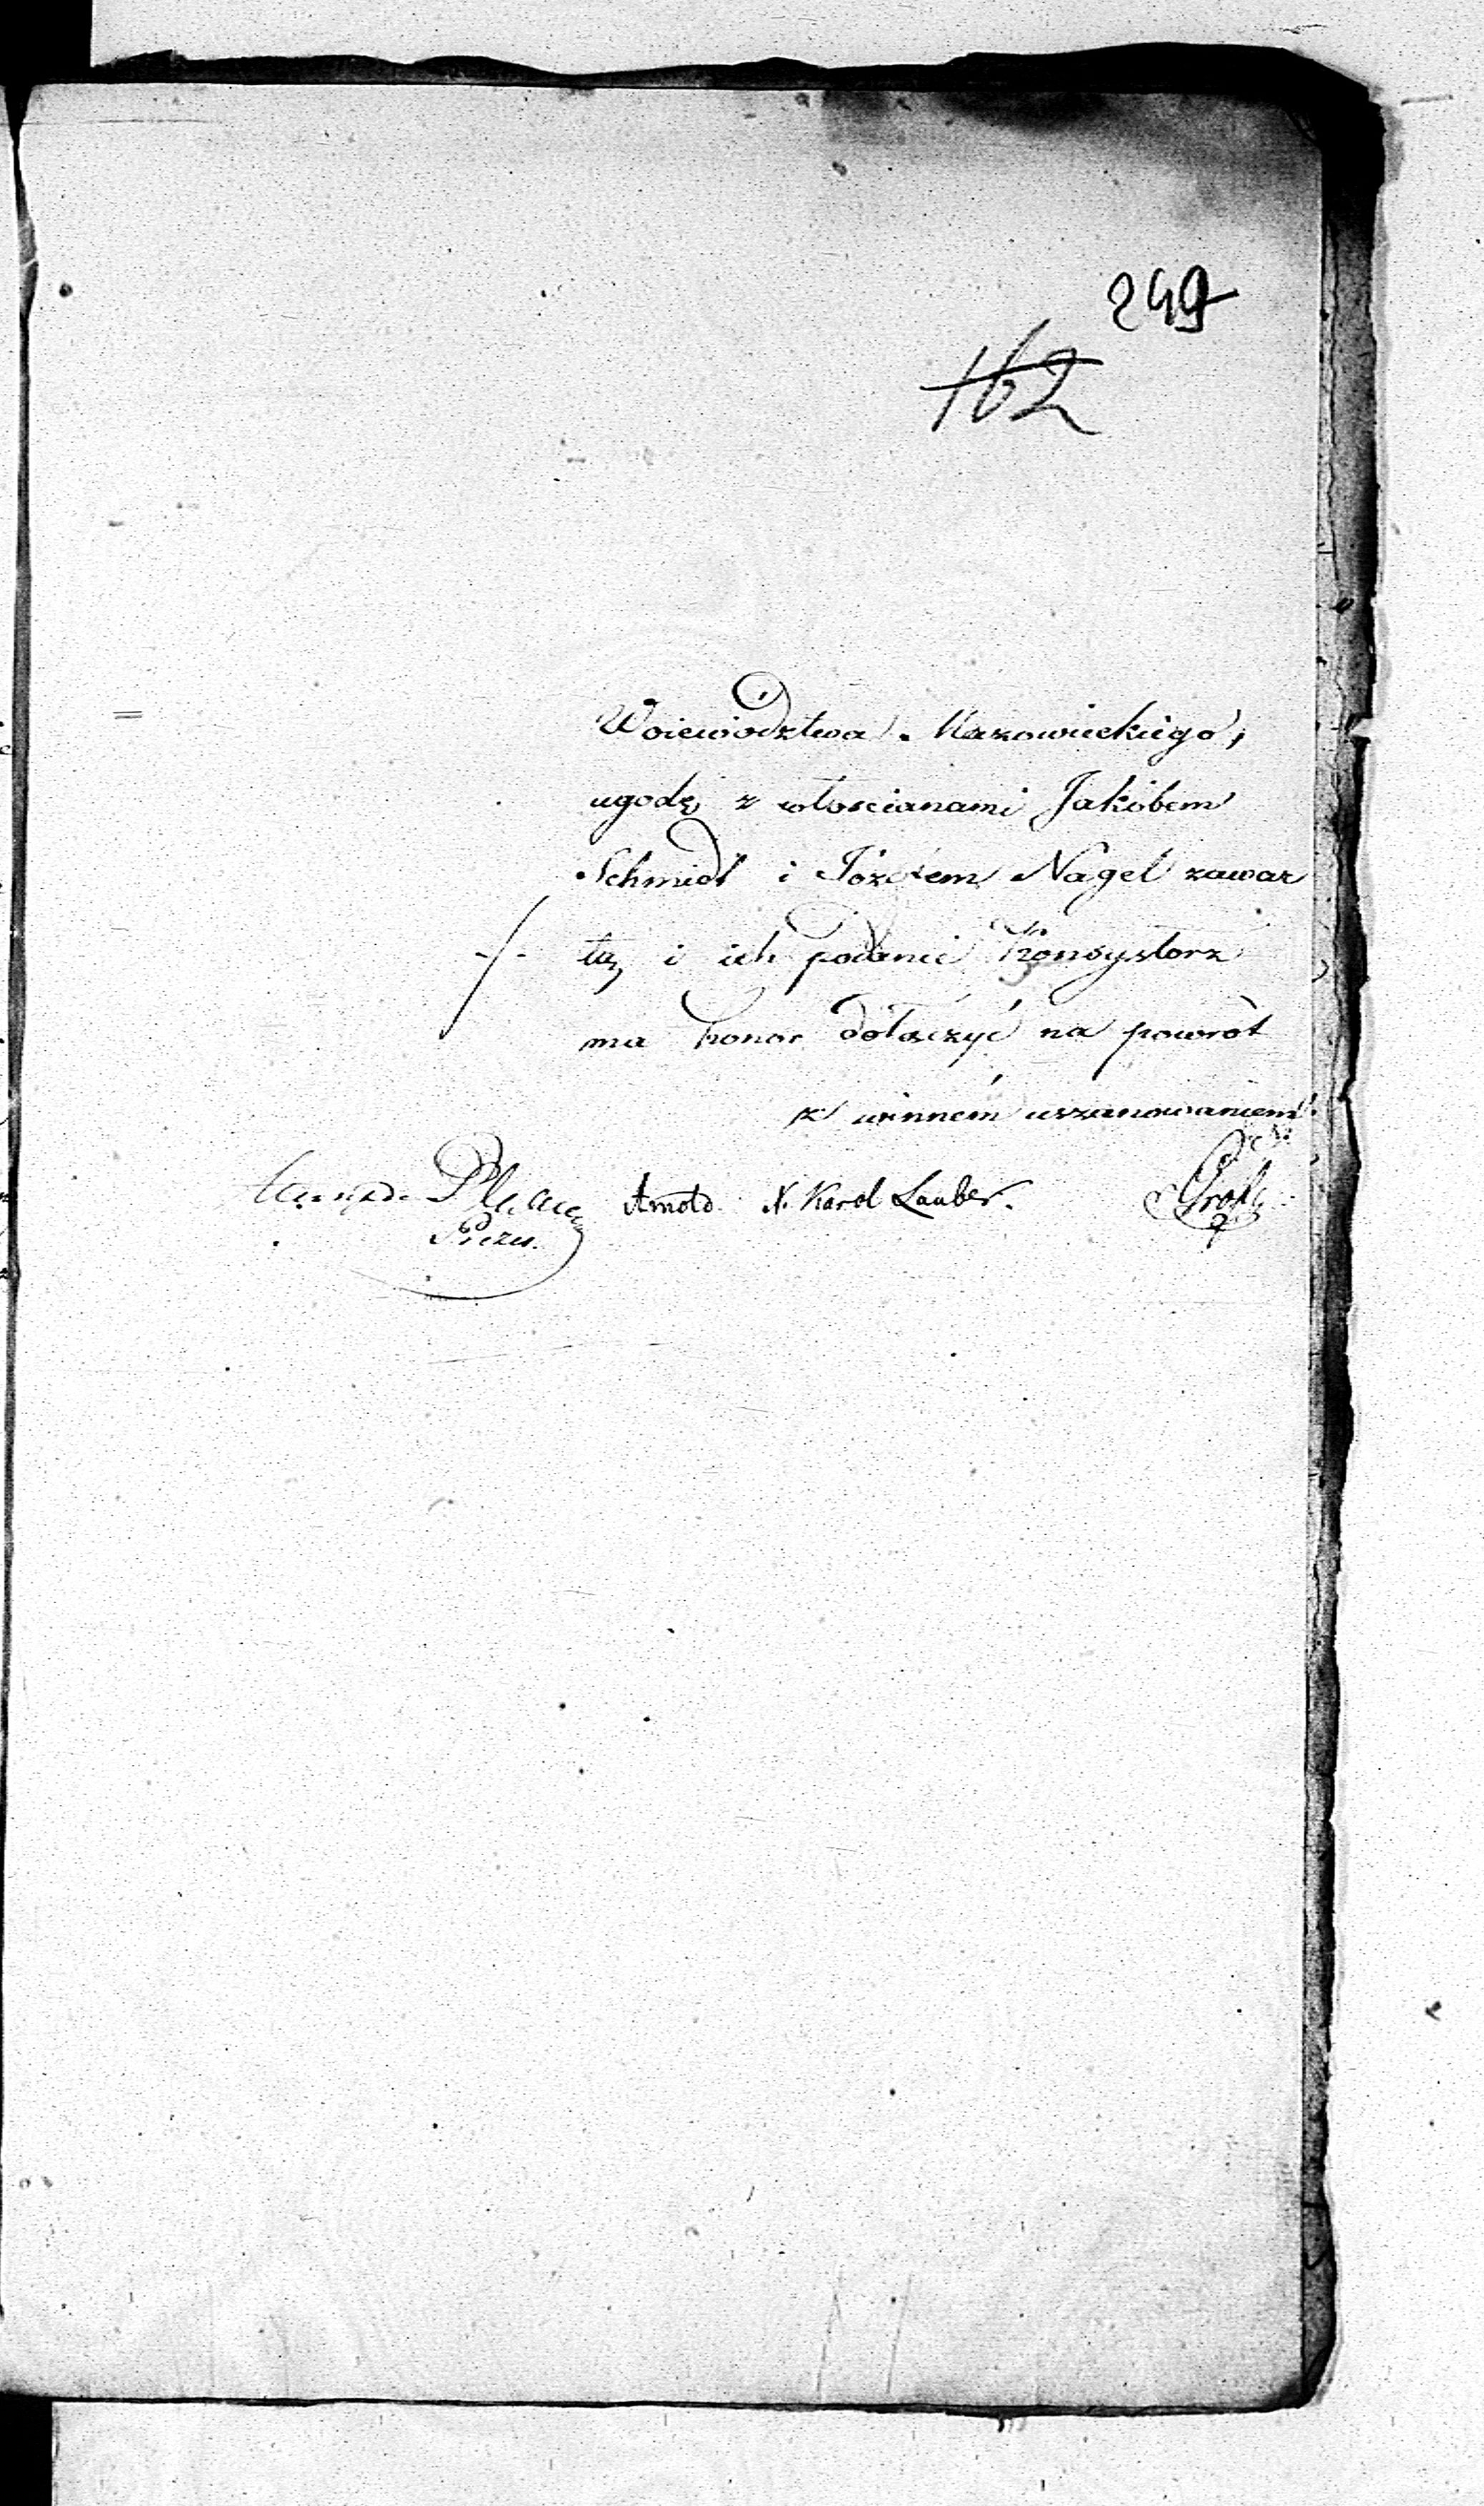 249
162
Woiewództwa Mazowieckiego,
ugodę z włoscianami Jakóbem
Schmidt i Józefem Nagel zawar
tą i ich podanie Konsystorz
ma honor dołączyć na powrót
z winnem uszanowaniem.
Arnold. K. Karol Lauber.
Prezes.